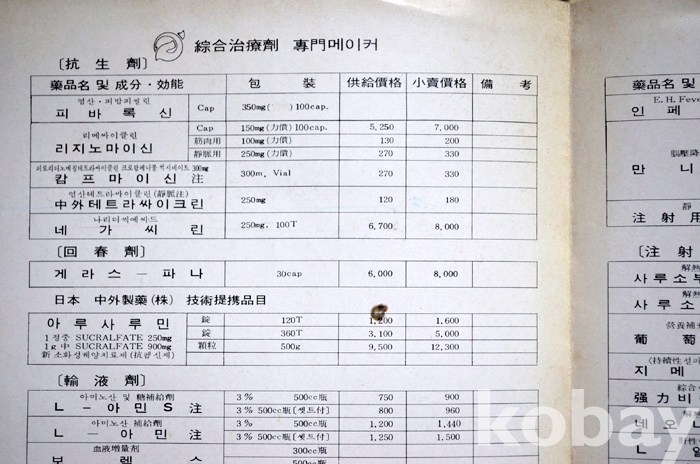 綜合治療劑 專門메이커
〔抗生劑〕
藥品名 및 成分・効能 包裝 供給價格 小賣價格 備考
염산・피밤피씰린
피바록신 Cap 350mg( )100cap.
리메싸이클린
리지노마이신 Cap 150mg(力價)100cap. 5,250 7,000
筋肉用 100mg(力價) 130 200
靜脈用 250mg(力價) 270 330
캄프마이신 注 300m, Vial 270 330
염산테트라싸이클린(靜脈注)
中外테트라싸이크린 250mg 120 180
나리디씩에씨드
네가씨린 250mg, 100T 6,700 8,000
〔回春劑〕
게라스ー파나 30cap 6,000 8,000
日本 中外製藥(株) 技術提携品目
아루사루민 錠 120T 1,200 1,600
1정중 SUCRALFATE 250mg 錠 360T 3,100 5,000
1g中 SUCRALFATE 900mg 顆粒 500g 9,500 12,300
新 소화성궤양치료제(抗펩신제)
〔輸液劑〕
아미노산 및 糖補給劑
L－아민S注 3% 500cc瓶 750 900
3% 500cc瓶〔셋트付〕 800 960
아미노산 補給劑
L－아민注 3% 500cc瓶 1,200 1,440
3% 500cc瓶〔셋트付〕 1,250 1,500
血液增量劑
300cc瓶
500cc瓶
藥品名 및
E. H. Feve
인페
腦壓降
만니
靜
注射用
〔注射
解熱
사루소부
解熱
사루소
營養補
葡萄
지메
綜合
强力비
네오
kobay